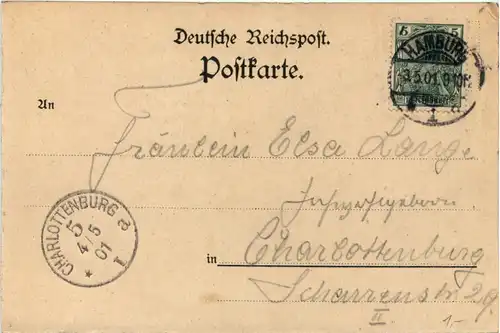 Deutsche Reichspost.
Postkarte.
5 5
HAMBURG
3.5.01.
1
An
Fräulein Elsa Lange
Hochwohlgeboren
CHARLOTTENBURG
5
4/5
01
*
in Charlottenburg
Scharrenstr 2/9
II
1.-